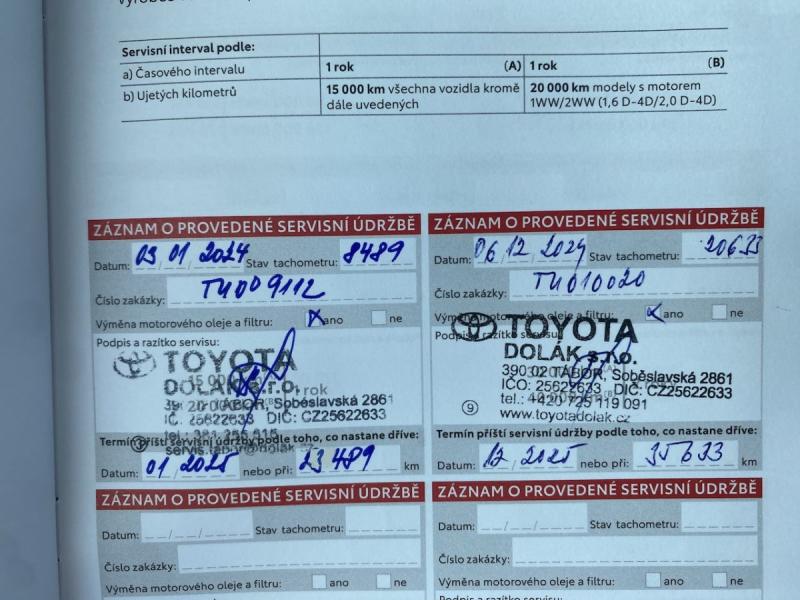 Servisní interval podle:
a) Časového intervalu 1 rok (A) 1 rok (B)
b) Ujetých kilometrů 15 000 km všechna vozidla kromě 20 000 km modely s motorem
dále uvedených 1WW/2WW (1,6 D-4D/2,0 D-4D)
ZÁZNAM O PROVEDENÉ SERVISNÍ ÚDRŽBĚ
Datum: 03 / 01 / 2024 Stav tachometru: 8489
Číslo zakázky: TU009112
Výměna motorového oleje a filtru: X ano ne
Podpis a razítko servisu:
TOYOTA
DOLÁK s.r.o.
TÁBOR, Soběslavská 2861
25622633 DIČ: CZ25622633
Termín příští servisní údržby podle toho, co nastane dříve:
Datum: 01 / 2025 nebo při: 23489 km
ZÁZNAM O PROVEDENÉ SERVISNÍ ÚDRŽBĚ
Datum: 06 / 12 / 2024 Stav tachometru: 20633
Číslo zakázky: TU010020
Výměna motorového oleje a filtru: X ano ne
Podpis a razítko servisu:
TOYOTA
DOLÁK s.r.o.
390 02 TÁBOR, Soběslavská 2861
IČO: 25622633 DIČ: CZ25622633
tel.: +420 725 119 091
www.toyotadolak.cz
9
Termín příští servisní údržby podle toho, co nastane dříve:
Datum: 12 / 2025 nebo při: 35633 km
ZÁZNAM O PROVEDENÉ SERVISNÍ ÚDRŽBĚ
Datum: Stav tachometru:
Číslo zakázky:
Výměna motorového oleje a filtru: ano ne
ZÁZNAM O PROVEDENÉ SERVISNÍ ÚDRŽBĚ
Datum: Stav tachometru:
Číslo zakázky:
Výměna motorového oleje a filtru: ano ne